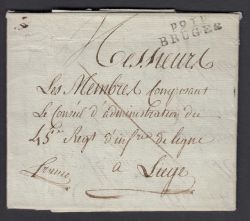 P91P
BRUGES
Messieurs
Les Membres Composant
Le Conseil d'administration du
45e Regt d'infrie de ligne
à Liege